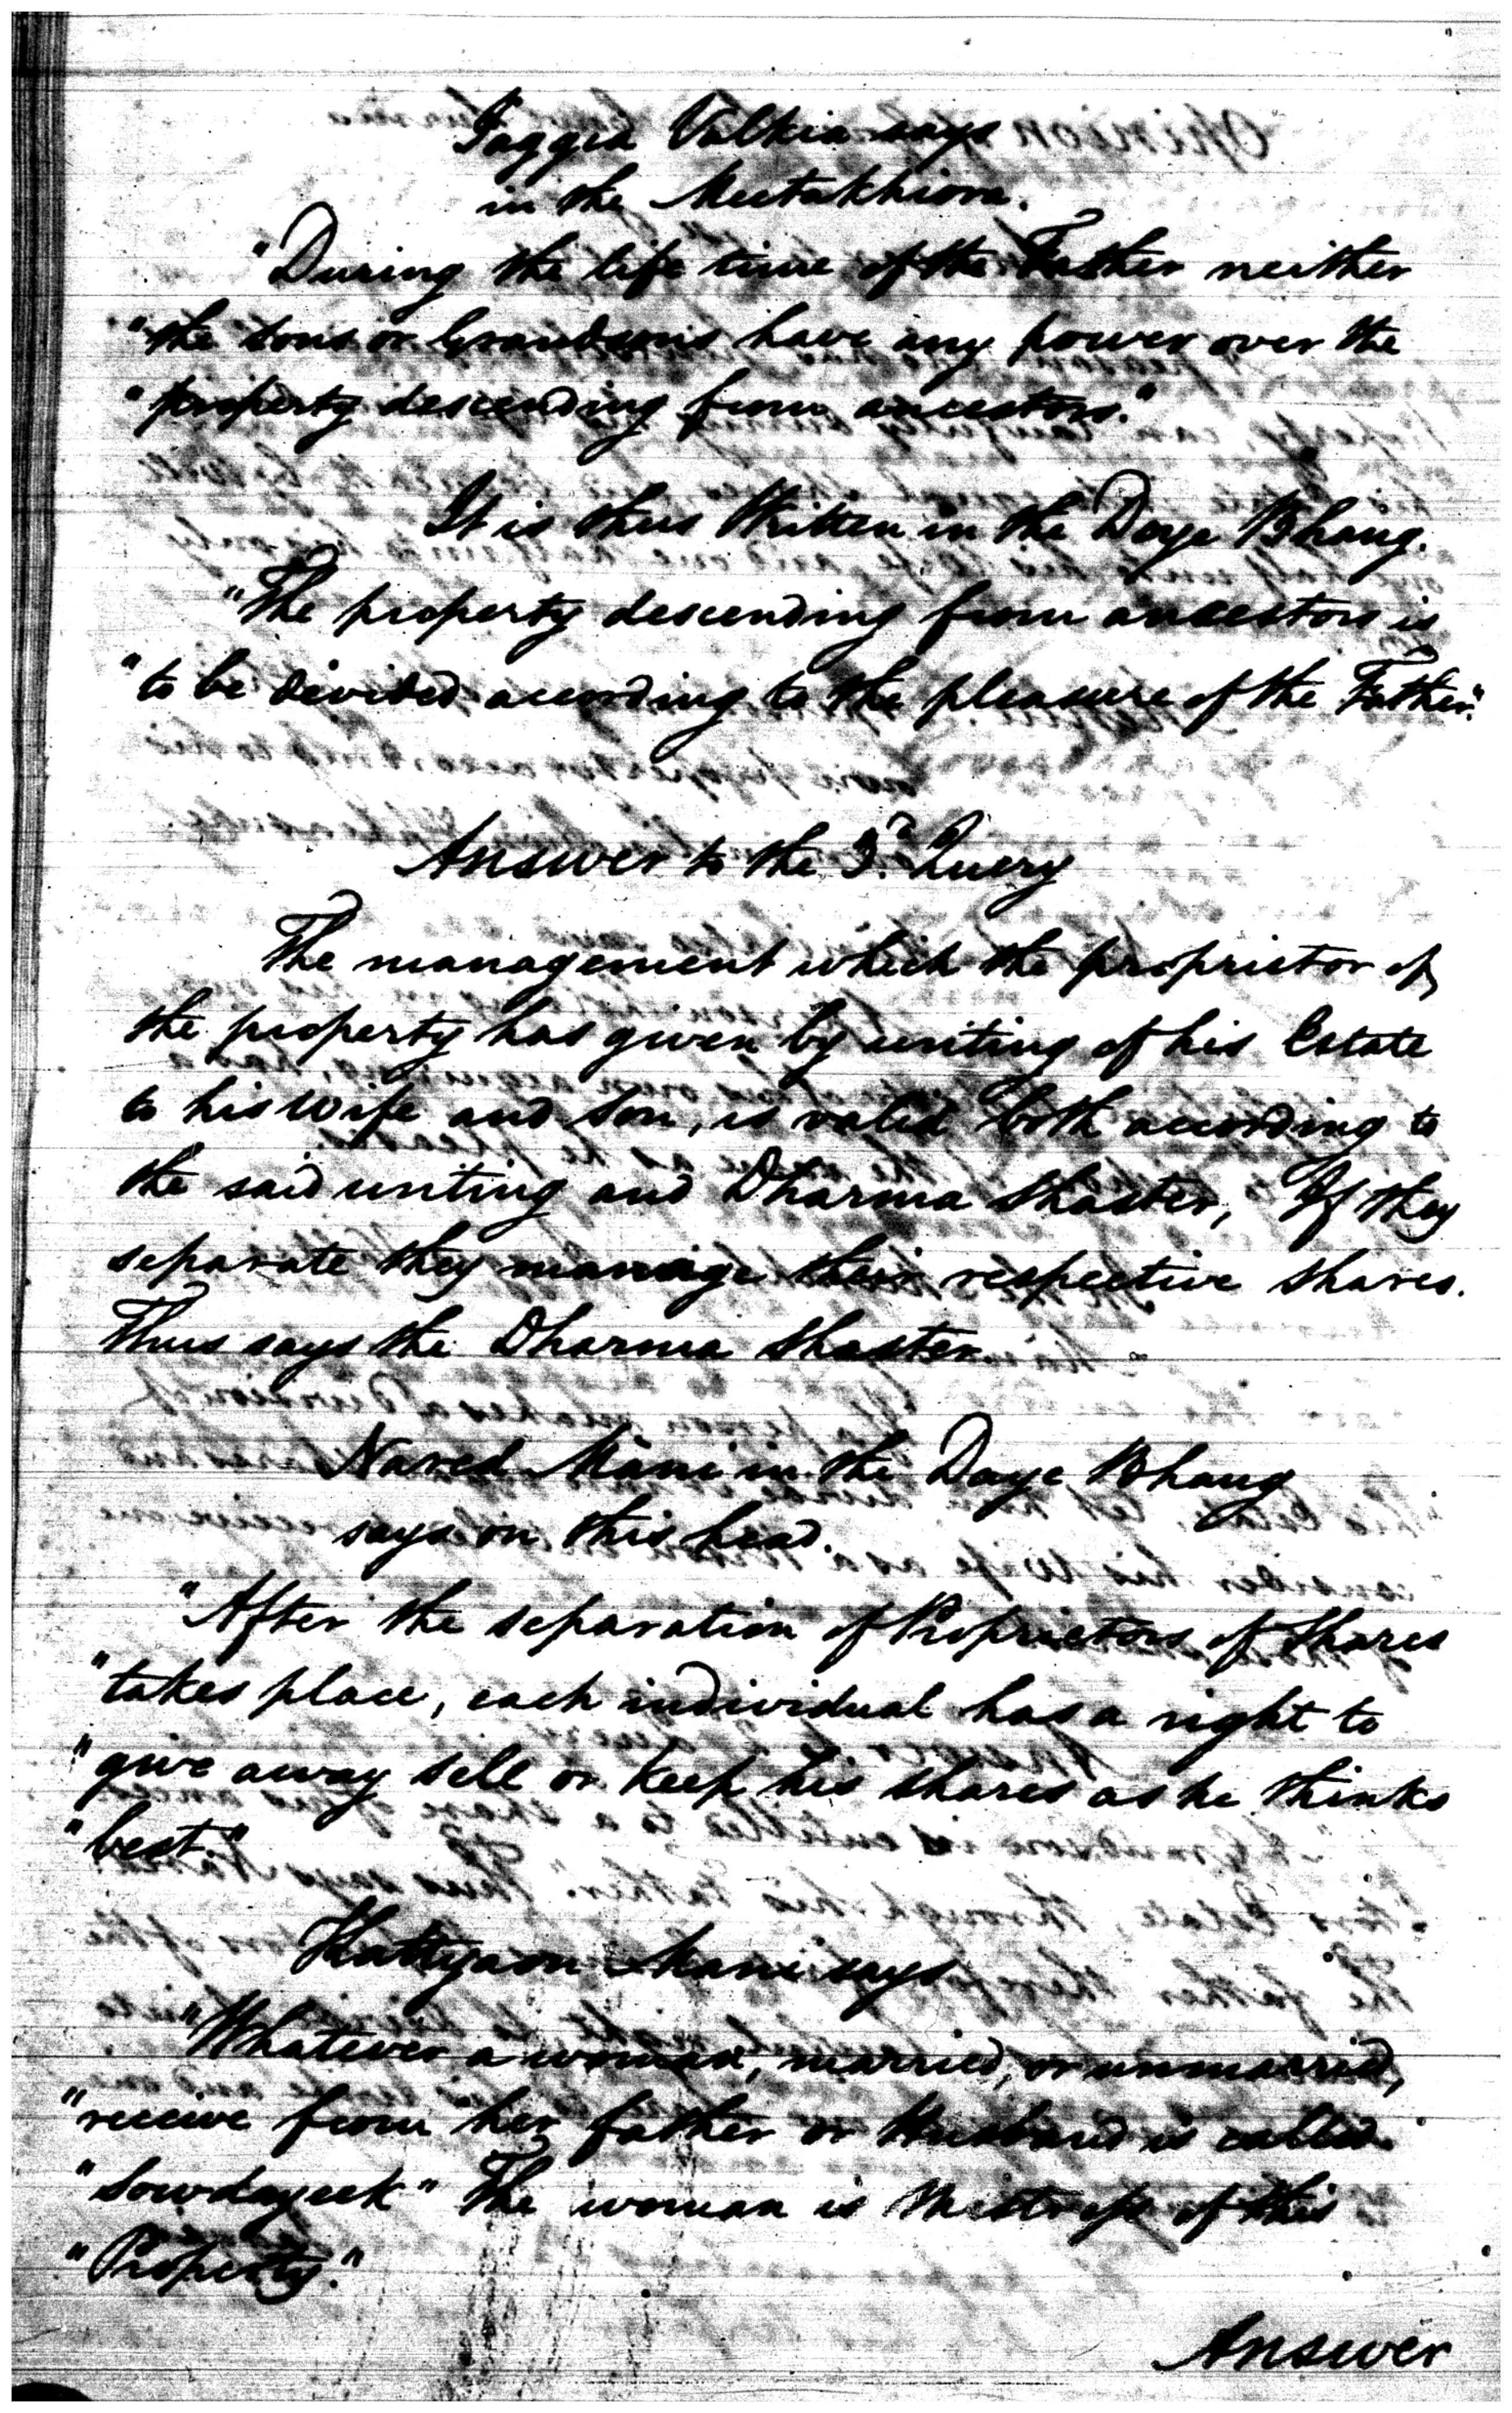 Jaggea Valkia says
in the Meetakhiora.
"During the life time of the Father neither
"the sons or Grandsons have any power over the
"property descending from ancestors."
It is thus Written in the Daye Bhang.
"The property descending from ancestors is
"to be divided according to the pleasure of the Father."
Answer to the 3d. Query
The management which the proprietor of
the property has given by writing of his Estate
to his Wife and Son, is valid both according to
the said writing and Dharma Shaster, If they
separate they manage their respective shares.
Thus says the Dharma Shaster.
Nared Mani in the Daye Bhang
says on this head.
"After the separation of Proprietors of Shares
"takes place, each individual has a right to
"give away sell or keep his shares as he thinks
"best."
Kattyaon Mani says
"Whatever a woman, married, or unmarried,
"receive from her father or Husband is called
"Sowdayeek" The woman is Mistress of this
"Property."
Answer